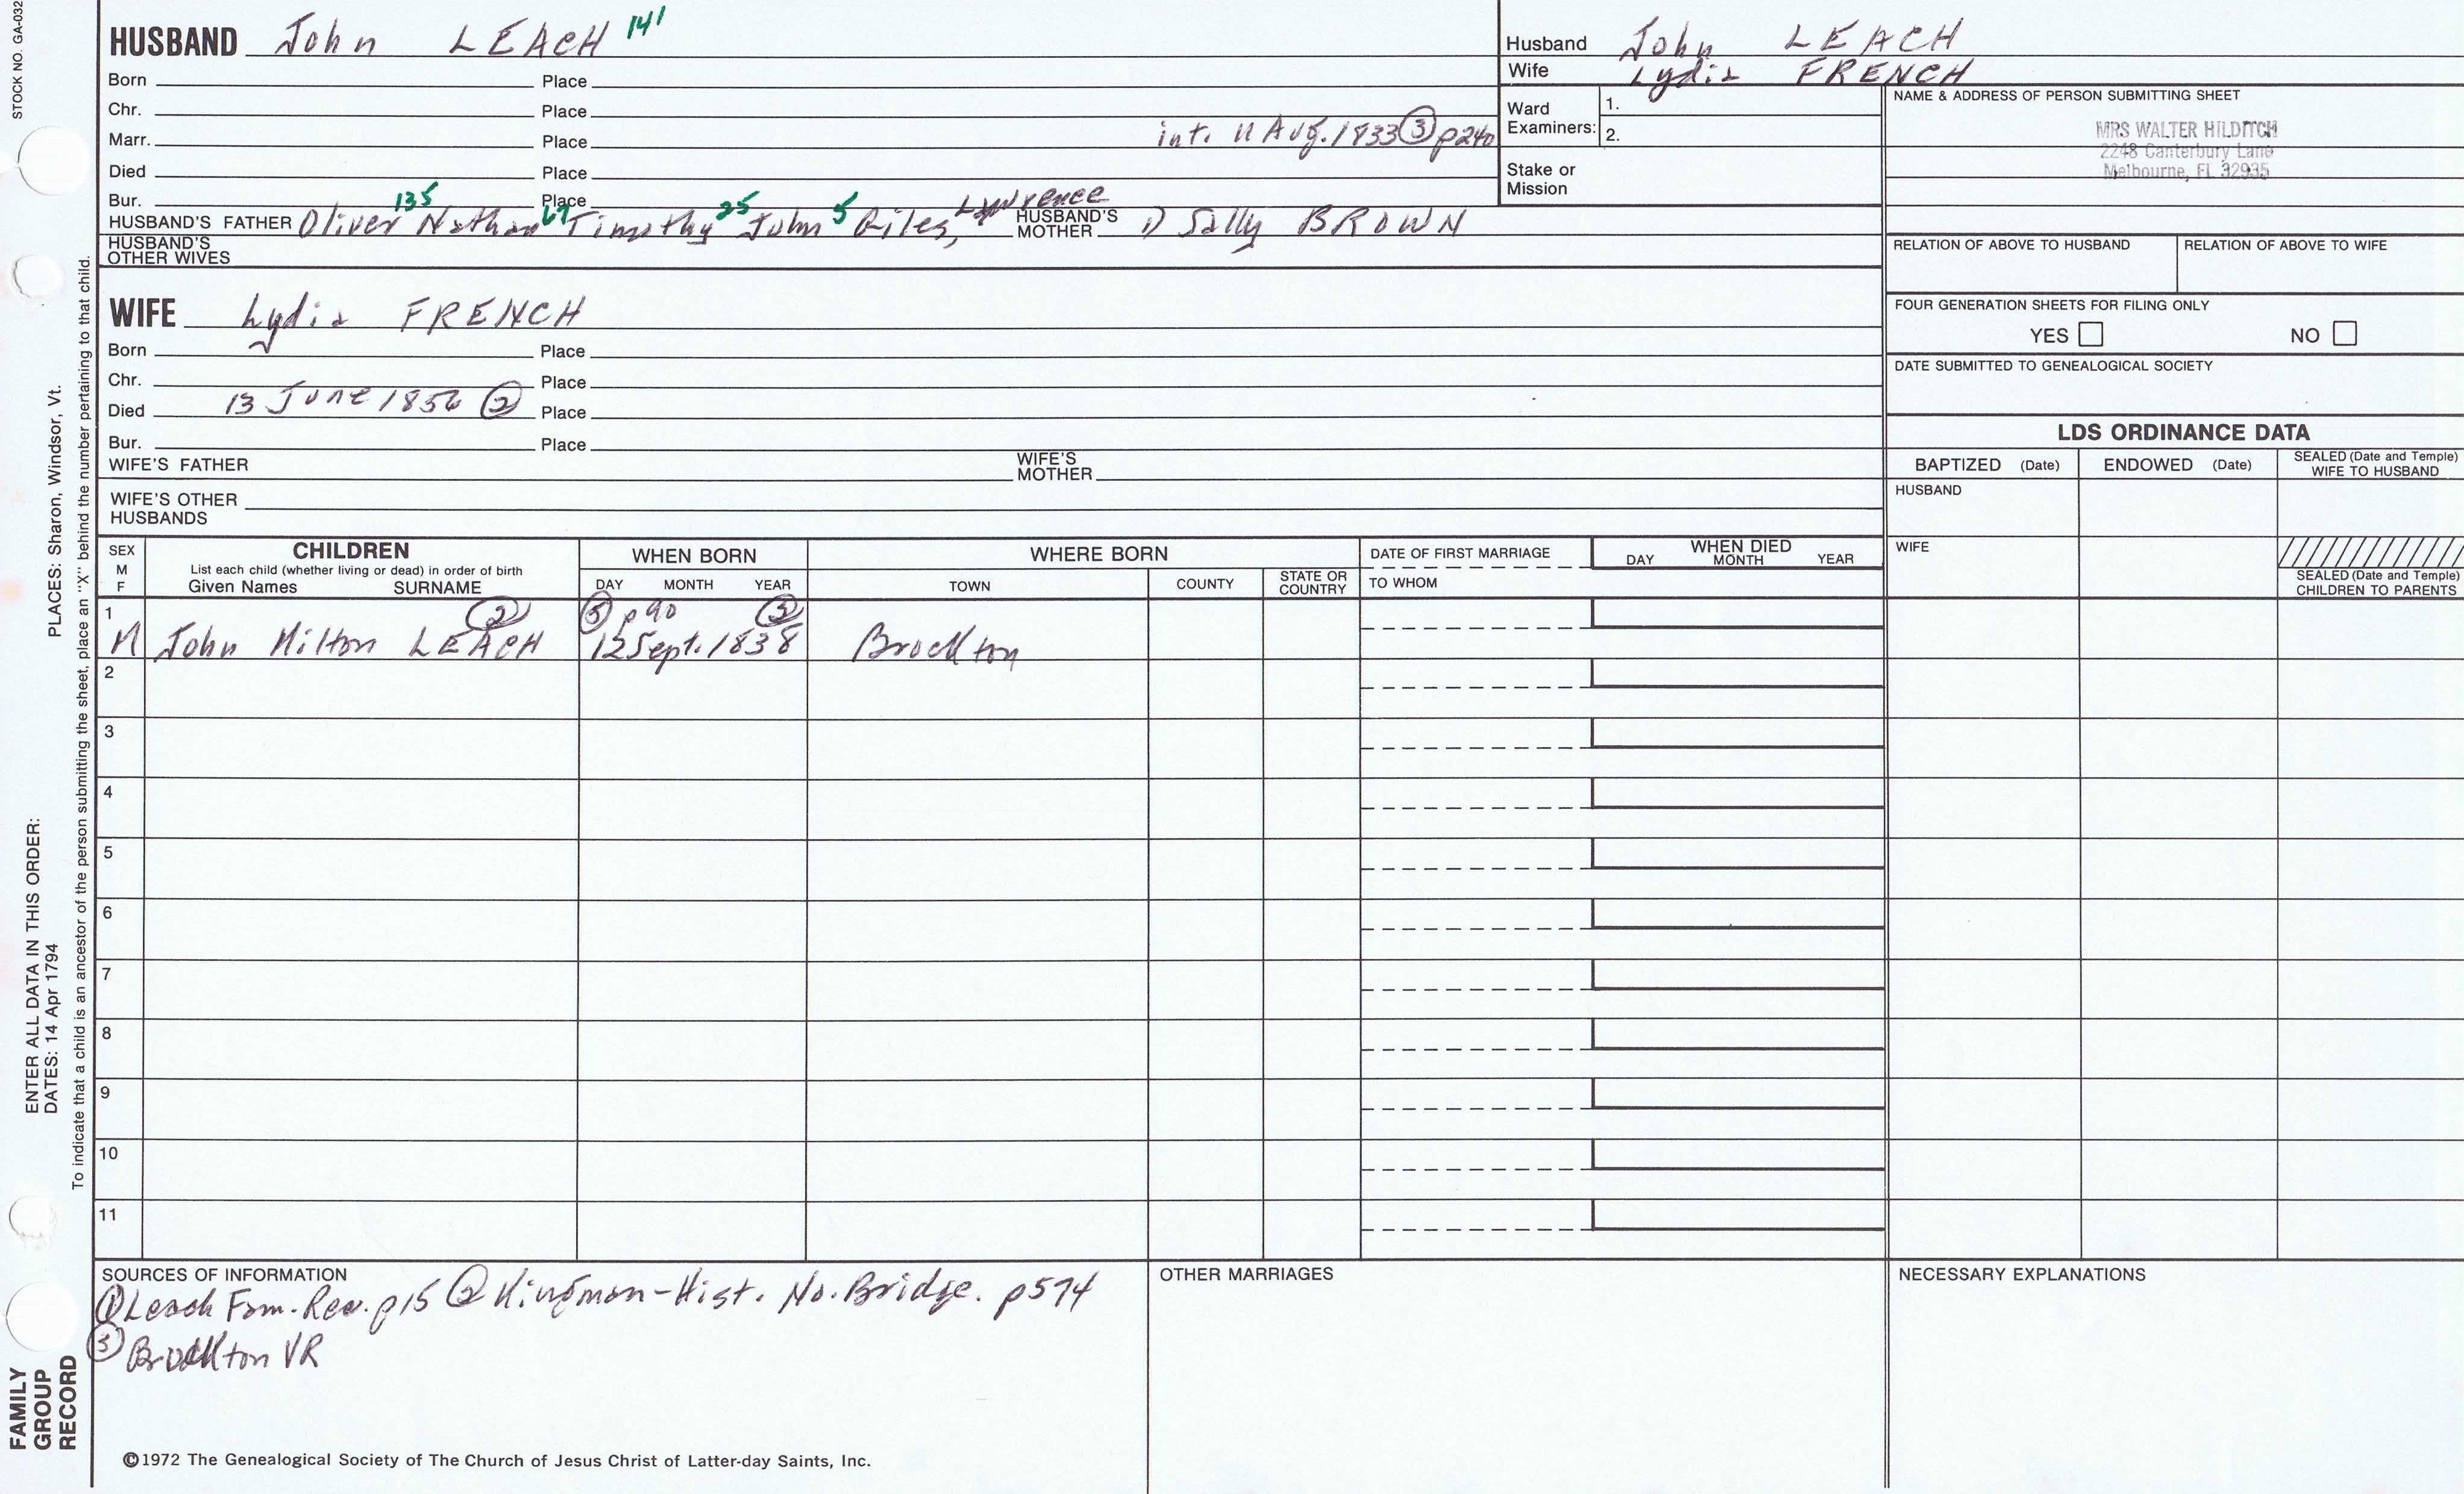 STOCK NO. GA-032
HUSBAND John LEACH 141
Born Place
Chr. Place
Marr. Place int. 11 Aug. 1833 ③ p240
Died Place
Bur. Place
HUSBAND'S FATHER Oliver 135 Nathan 67 Timothy 25 John 5 Giles, Lawrence HUSBAND'S MOTHER 1) Sally BROWN
HUSBAND'S OTHER WIVES
WIFE Lydia FRENCH
Born Place
Chr. Place
Died 13 June 1856 ② Place
Bur. Place
WIFE'S FATHER WIFE'S MOTHER
WIFE'S OTHER HUSBANDS
Husband John LEACH
Wife Lydia FRENCH
Ward Examiners: 1.
2.
Stake or Mission
NAME & ADDRESS OF PERSON SUBMITTING SHEET
MRS WALTER HILDITCH
2248 Canterbury Lane
Melbourne, FL 32935
RELATION OF ABOVE TO HUSBAND RELATION OF ABOVE TO WIFE
FOUR GENERATION SHEETS FOR FILING ONLY
YES NO
DATE SUBMITTED TO GENEALOGICAL SOCIETY
LDS ORDINANCE DATA
BAPTIZED (Date) ENDOWED (Date) SEALED (Date and Temple) WIFE TO HUSBAND
HUSBAND
WIFE
SEALED (Date and Temple) CHILDREN TO PARENTS
SEX M F CHILDREN WHEN BORN WHERE BORN DATE OF FIRST MARRIAGE WHEN DIED
List each child (whether living or dead) in order of birth
Given Names SURNAME DAY MONTH YEAR TOWN COUNTY STATE OR COUNTRY TO WHOM DAY MONTH YEAR
1 ② ③ p90 ③
M John Milton LEACH 12 Sept. 1838 Brockton
2
3
4
5
6
7
8
9
10
11
SOURCES OF INFORMATION
① Leach Fam. Rec. p15 ② Kingman-Hist. No. Bridge. p574
③ Brockton VR
OTHER MARRIAGES
NECESSARY EXPLANATIONS
©1972 The Genealogical Society of The Church of Jesus Christ of Latter-day Saints, Inc.
ENTER ALL DATA IN THIS ORDER:
DATES: 14 Apr 1794
PLACES: Sharon, Windsor, Vt.
To indicate that a child is an ancestor of the person submitting the sheet, place an "X" behind the number pertaining to that child.
FAMILY
GROUP
RECORD